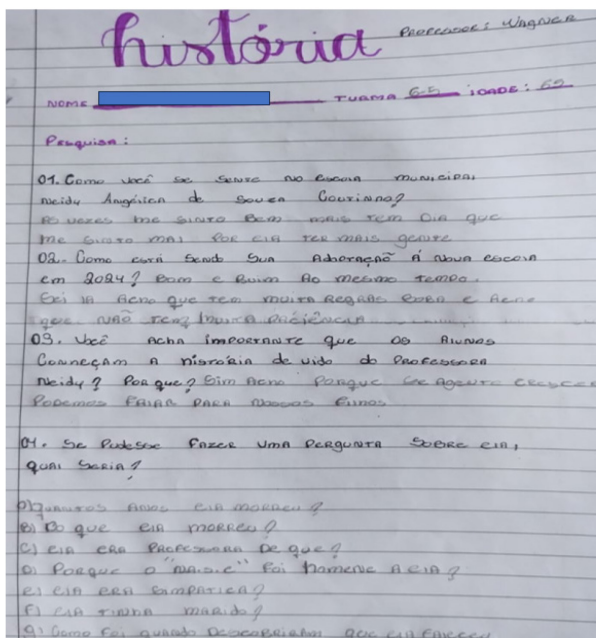 história Professor: Wagner
NOME TURMA 6-5 IDADE:
Pesquisa:
01. Como você se sente no escola municipal
Neidy Angélica de Souza Coutinho?
As vezes me sinto Bem mais tem Dia que
me sinto mal Por ela ter mais gente
02. Como está sendo sua Adoração A nova escola
em 2024? Bom e Ruim Ao mesmo tempo.
Acho que tem muita Regras e Acho
que NÃO tem muita Paciência
03. Você Acha importante que os Alunos
Conheçam A história de vida do Professora
Neidy? Por que? Sim Acho Porque se Agente crescer
Podemos Falar Para Nossos Filhos
04. Se Pudesse Fazer Uma Pergunta Sobre ela,
qual seria?
A) quantos Anos ela morreu?
B) Do que ela morreu?
C) ela era Professora De que?
D) Porque o foi homene A ela?
E) ela era simpatica?
F) ela tinha marido?
g) Como foi quando Descobriram que ela faleceu